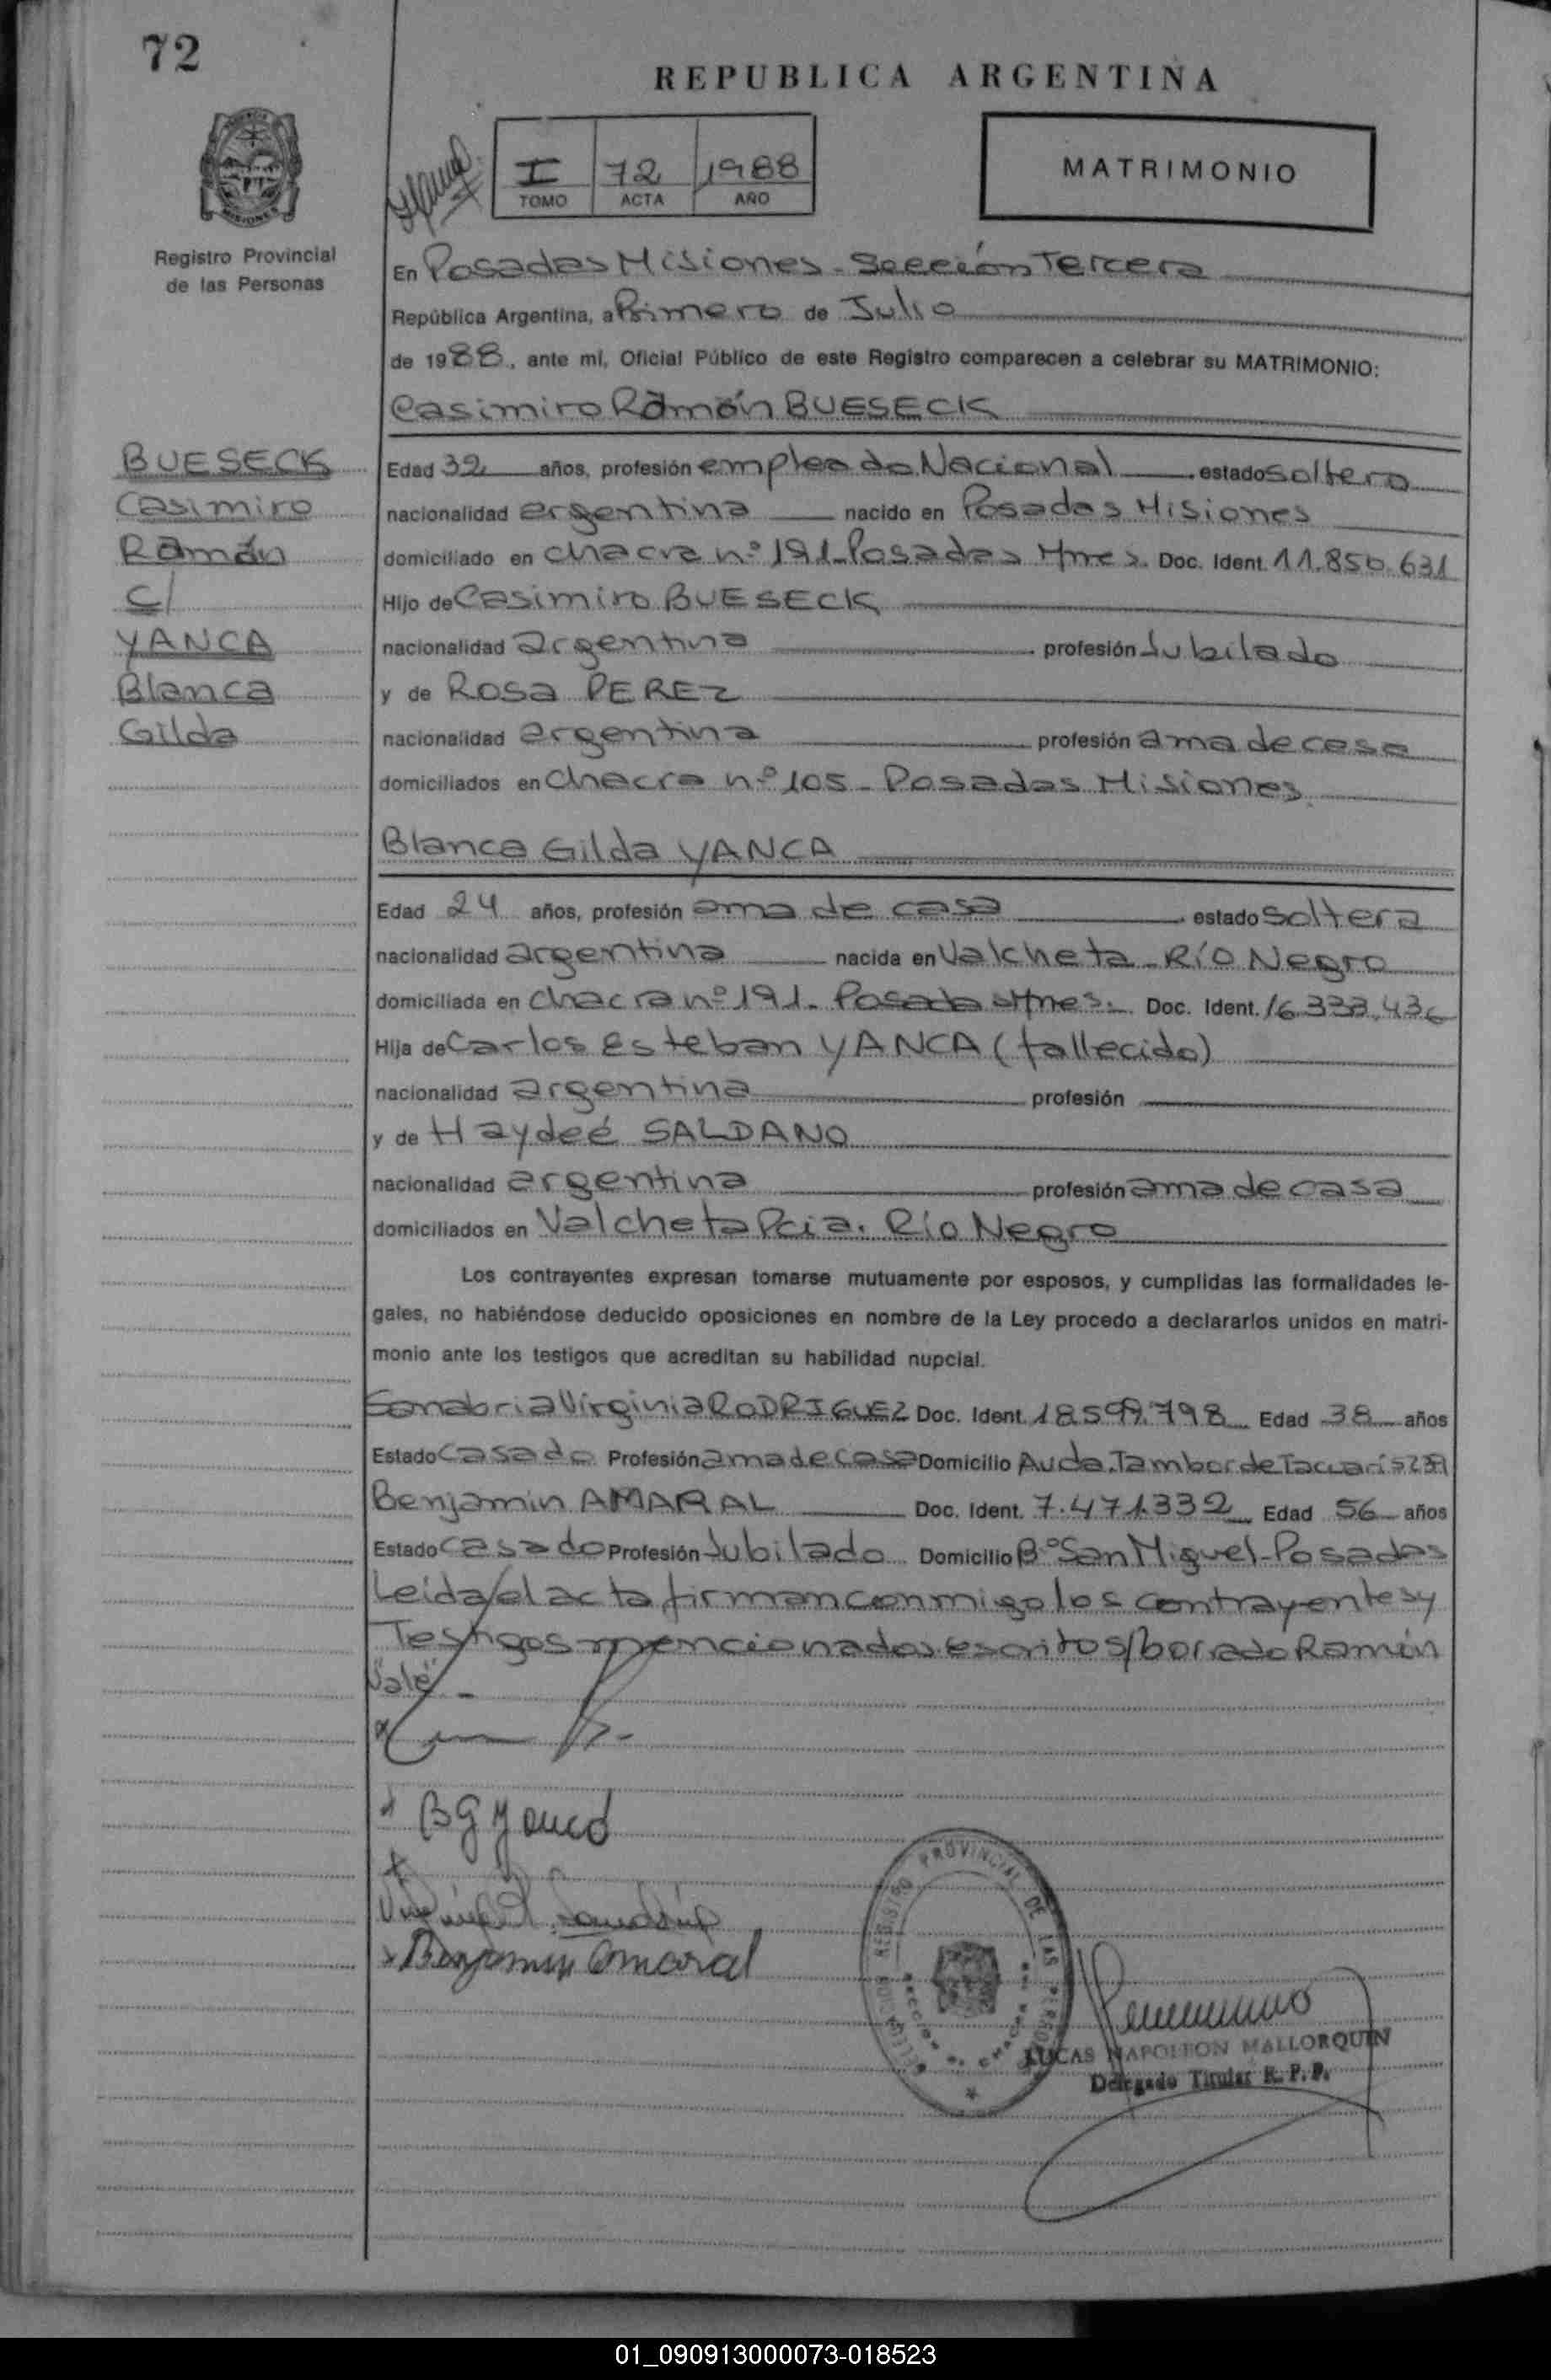 72
REPUBLICA ARGENTINA
I 72 1988
TOMO ACTA AÑO
MATRIMONIO
MISIONES
Registro Provincial
de las Personas
En Posadas Misiones - Sección Tercera
República Argentina, a Primero de Julio
de 1988, ante mí, Oficial Público de este Registro comparecen a celebrar su MATRIMONIO:
Casimiro Ramón BUESECK
BUESECK
Casimiro
Ramón
C/
YANCA
Blanca
Gilda
Edad 32 años, profesión empleado Nacional estado soltero
nacionalidad argentina nacido en Posadas Misiones
domiciliado en chacra nº 191-Posadas Mnes. Doc. Ident. 11.850.631
Hijo de Casimiro BUESECK
nacionalidad argentina profesión Jubilado
y de Rosa PEREZ
nacionalidad argentina profesión ama de casa
domiciliados en Chacra nº 105 - Posadas Misiones
Blanca Gilda YANCA
Edad 24 años, profesión ama de casa estado soltera
nacionalidad argentina nacida en Valcheta - Río Negro
domiciliada en Chacra nº 191 - Posadas Mnes. Doc. Ident. 16.333.436
Hija de Carlos Esteban YANCA (fallecido)
nacionalidad argentina profesión
y de Haydeé SALDANO
nacionalidad argentina profesión ama de casa
domiciliados en Valcheta Pcia. Río Negro
Los contrayentes expresan tomarse mutuamente por esposos, y cumplidas las formalidades le-
gales, no habiéndose deducido oposiciones en nombre de la Ley procedo a declararlos unidos en matri-
monio ante los testigos que acreditan su habilidad nupcial.
Sanabria Virginia RODRIGUEZ Doc. Ident. 18.599.798 Edad 38 años
Estado casado Profesión ama de casa Domicilio Avda. Tambor de Tacuarí
Benjamin AMARAL Doc. Ident. 7.471.332 Edad 56 años
Estado casado Profesión Jubilado Domicilio Bº San Miguel-Posadas
Leída el acta firman conmigo los contrayentes y
Testigos mencionados escrito s/borrado Ramón
"Vale" -
BG Yanca
Benjamin Amaral
REGISTRO PROVINCIAL DE LAS PERSONAS
LUCAS NAPOLEON MALLORQUIN
Delegado Titular R. P. P.
01_090913000073-018523